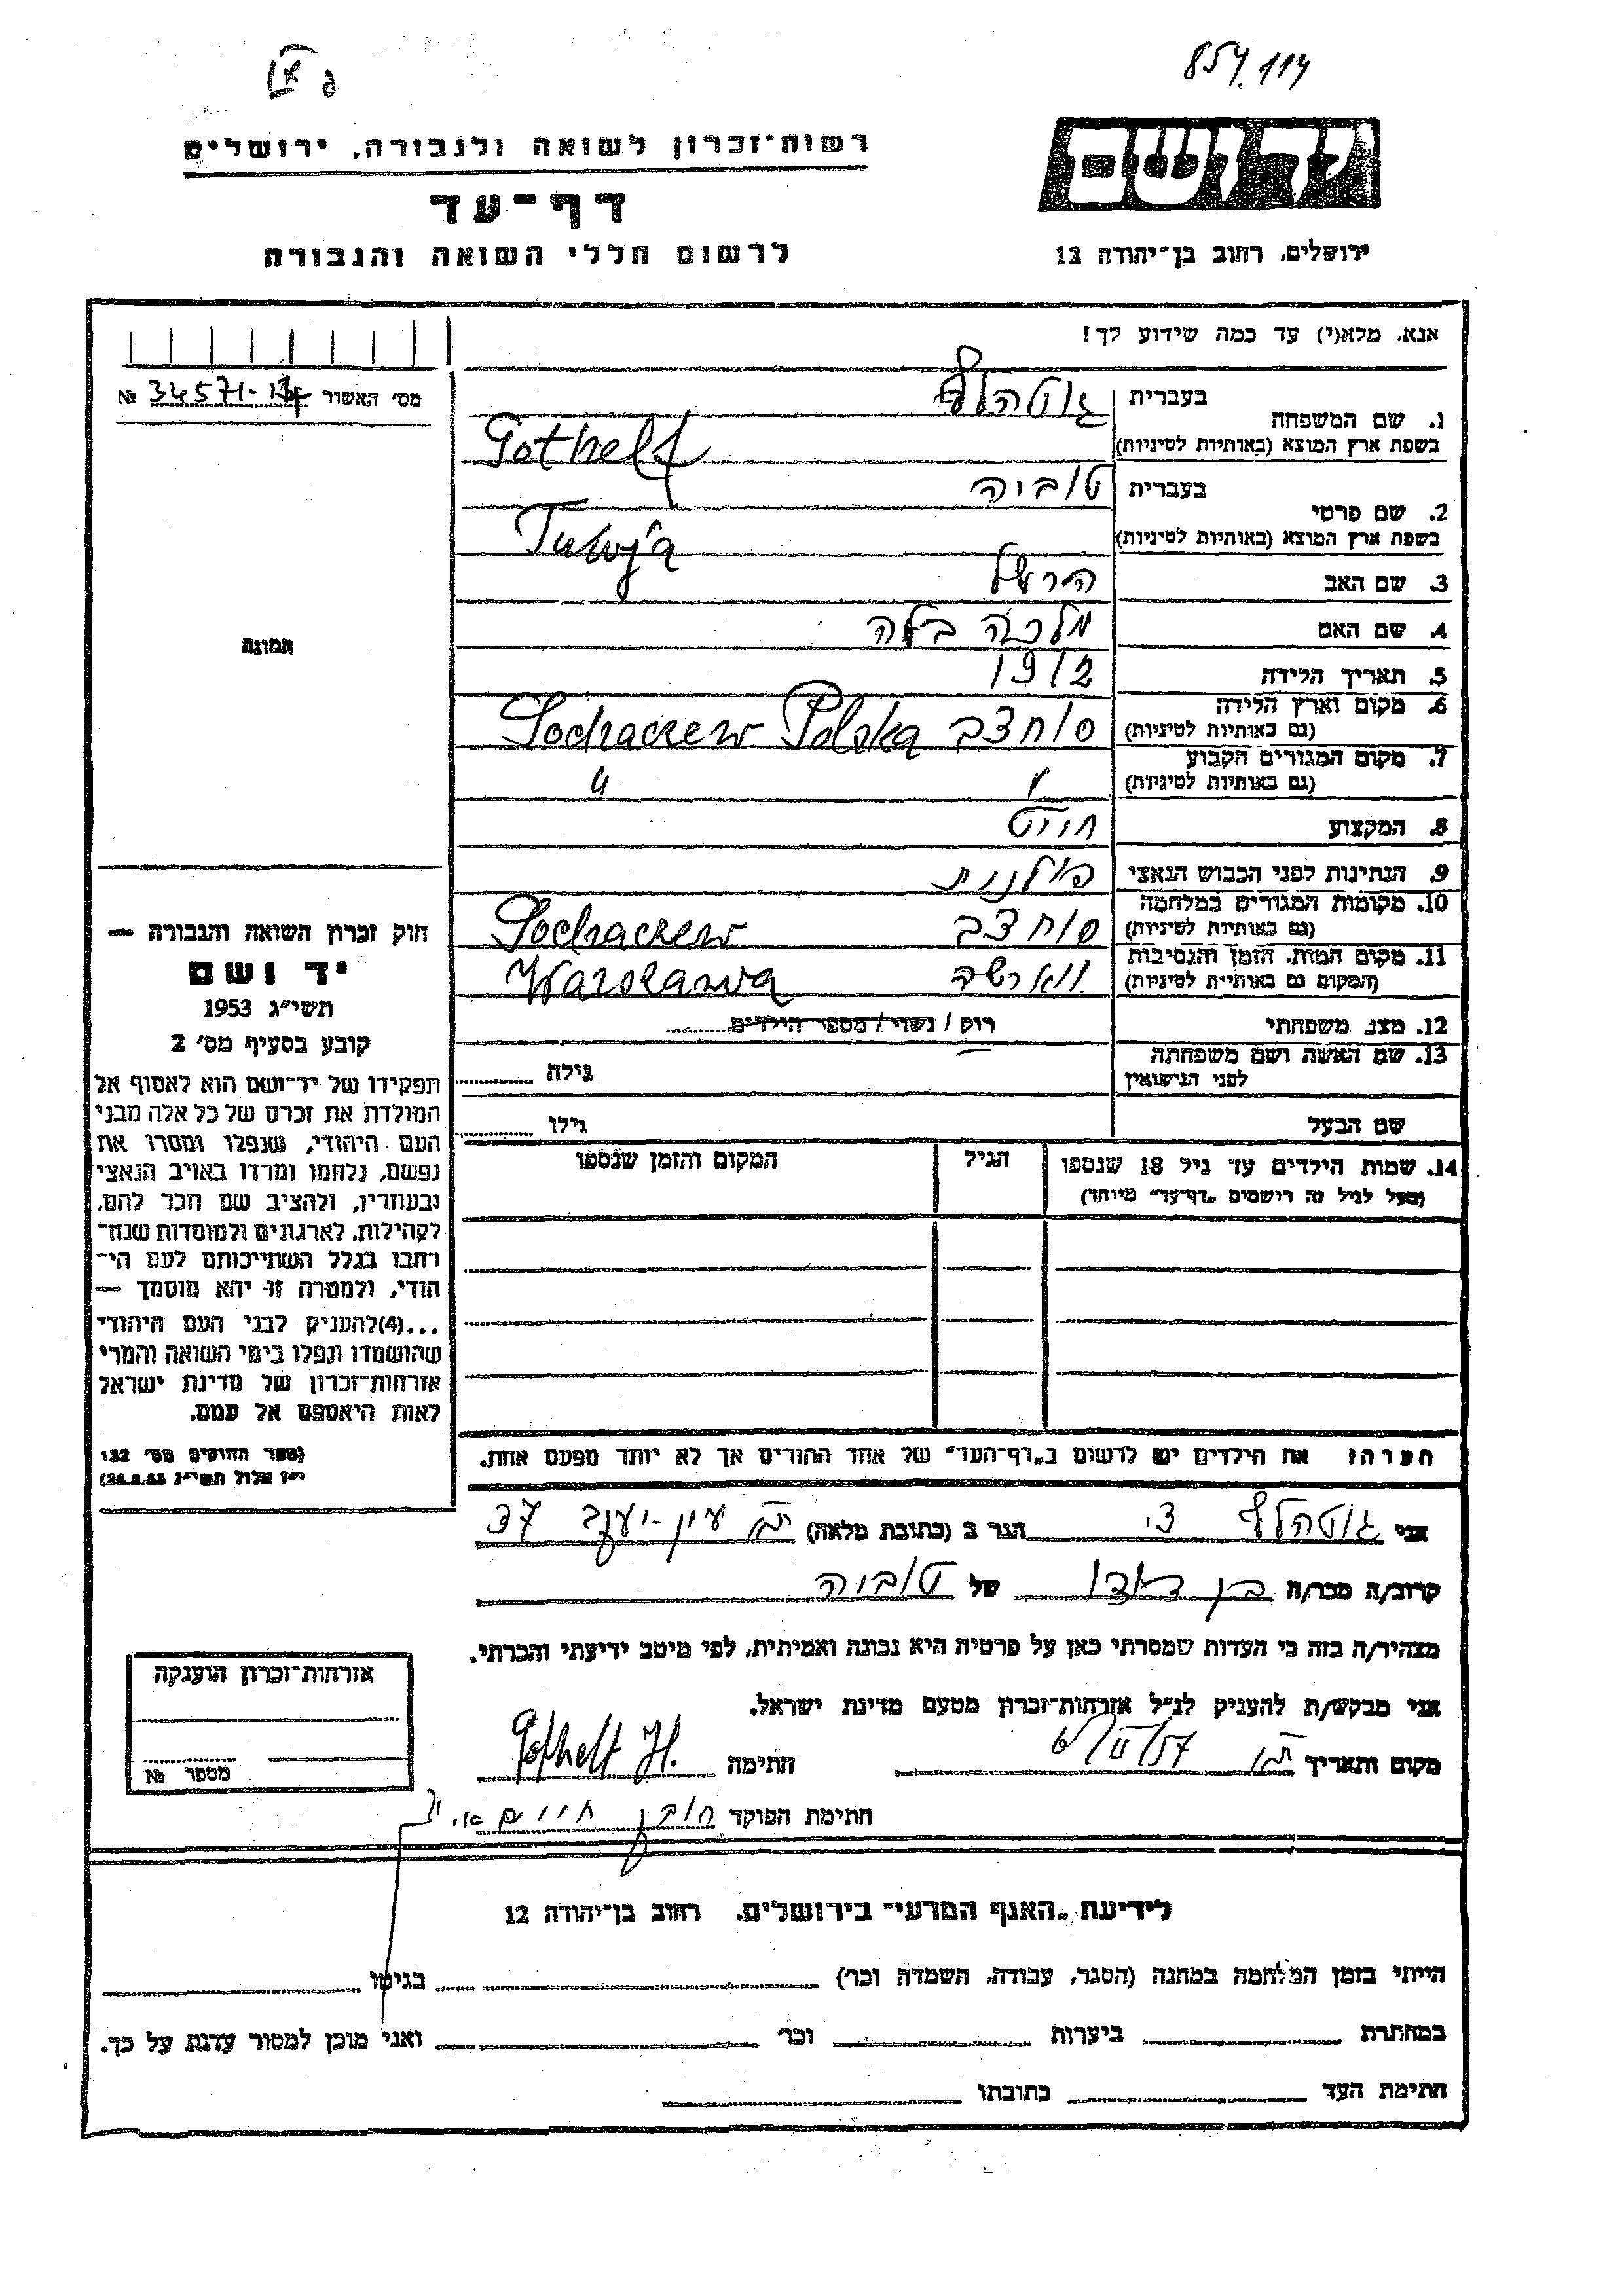 854.114
רשות־זכרון לשואה ולגבורה, ירושלים
דף־עד
לרשום חללי השואה והגבורה
ירושלים, רחוב בן־יהודה 12
אנא, מלא(י) עד כמה שידוע לך!
מס׳ האשור № 34571-
1. שם המשפחה בעברית גוטהלף
בשפת ארץ המוצא (באותיות לטיניות) Gothelf
2. שם פרטי בעברית טוביה
בשפת ארץ המוצא (באותיות לטיניות) Tuwja
3. שם האב הרשל
4. שם האם מלכה בלה
5. תאריך הלידה 1912
6. מקום וארץ הלידה
(גם באותיות לטיניות) סוחצב Sochaczew Polska
7. מקום המגורים הקבוע
(גם באותיות לטיניות) " "
8. המקצוע חייט
9. הנתינות לפני הכבוש הנאצי פולנית
10. מקומות המגורים במלחמה
(גם באותיות לטיניות) סוחצב Sochaczew
11. מקום המות, הזמן והנסיבות
(המקום גם באותיות לטיניות) ווארשה Warszawa
12. מצב משפחתי רוק / נשוי / מספר הילדים
13. שם האשה ושם משפחתה
לפני הנישואין גילה
שם הבעל גילו
14. שמות הילדים עד גיל 18 שנספו הגיל המקום והזמן שנספו
(מעל לגיל זה רושמים „דף־עד״ מיוחד)
הערה: את הילדים יש לרשום ב„דף־העד״ של אחד ההורים אך לא יותר מפעם אחת.
תמונה
חוק זכרון השואה והגבורה —
יד ושם
תשי״ג 1953
קובע בסעיף מס׳ 2
תפקידו של יד־ושם הוא לאסוף אל
המולדת את זכרם של כל אלה מבני
העם היהודי, שנפלו ומסרו את
נפשם, נלחמו ומרדו באויב הנאצי
ובעוזריו, ולהציב שם וזכר להם,
לקהילות, לארגונים ולמוסדות שנח־
רבו בגלל השתייכותם לעם הי־
הודי, ולמטרה זו יהא מוסמך —
...(4)להעניק לבני העם היהודי
שהושמדו ונפלו בימי השואה והמרי
אזרחות־זכרון של מדינת ישראל
לאות היאספם אל עמם.
(ספר החוקים מס׳ 132
י״ז אלול תשי״ג 28.8.53)
אני גוטהלף צבי הגר ב (כתובת מלאה) ת״א עין-יעקב 37
קרוב/ה מכר/ה בן דודו של טוביה
מצהיר/ה בזה כי העדות שמסרתי כאן על פרטיה היא נכונה ואמיתית, לפי מיטב ידיעתי והכרתי.
אני מבקש/ת להעניק לנ״ל אזרחות־זכרון מטעם מדינת ישראל.
מקום ותאריך ת״א חתימה Gothelf H.
חתימת הפוקד
אזרחות־זכרון הוענקה
מספר №
לידיעת „האגף המדעי״ בירושלים, רחוב בן־יהודה 12
הייתי בזמן המלחמה במחנה (הסגר, עבודה, השמדה וכו׳) בגיטו
במחתרת ביערות וכו׳ ואני מוכן למסור עדות על כך.
חתימת העד כתובתו